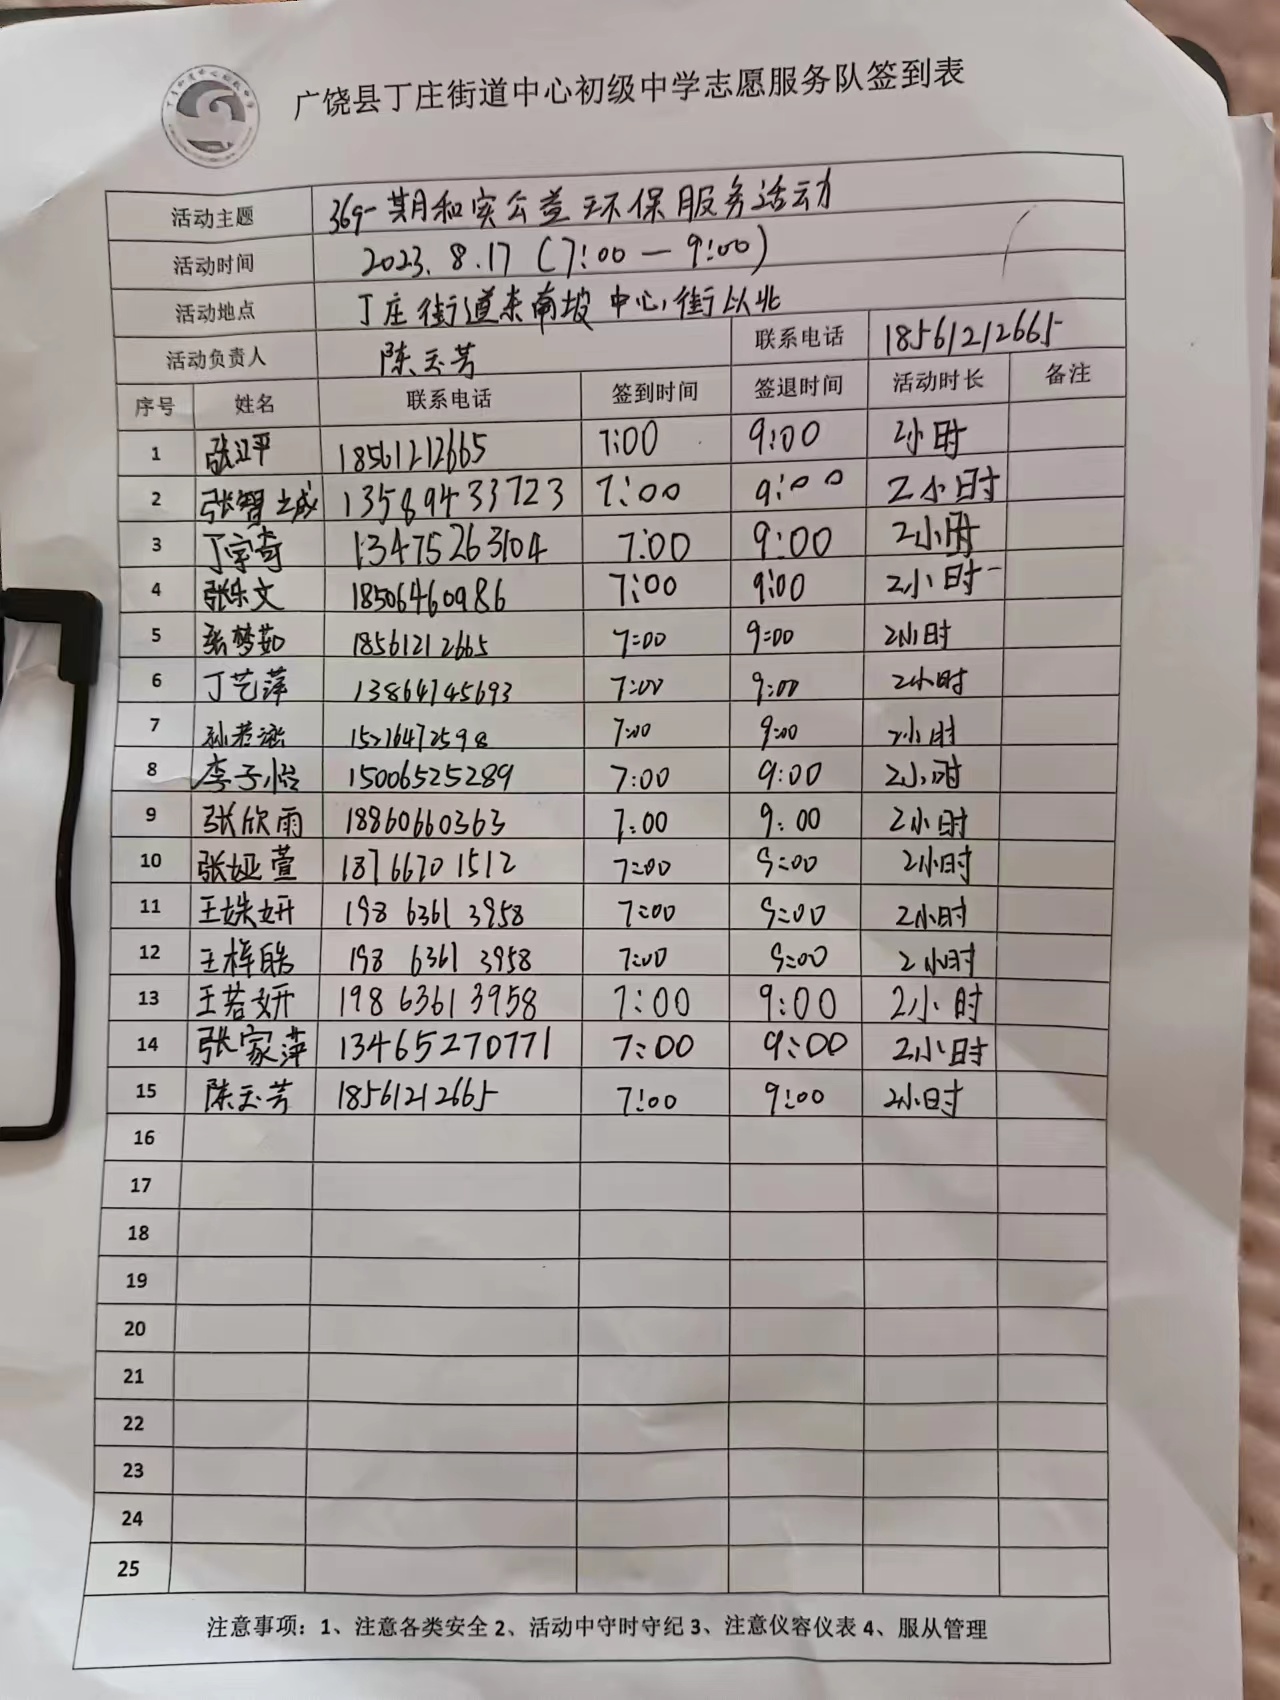 广饶县丁庄街道中心初级中学志愿服务队签到表
活动主题 369一期和实公益环保服务活动
活动时间 2023.8.17(7:00—9:00)
活动地点 丁庄街道东南坡中心街以北
活动负责人 陈玉芳 联系电话 18561212665
序号 姓名 联系电话 签到时间 签退时间 活动时长 备注
1 张江平 18561212665 7:00 9:00 2小时
2 张智城 13589433723 7:00 9:00 2小时
3 丁宇奇 13475263104 7:00 9:00 2小时
4 张乐文 18506460986 7:00 9:00 2小时
5 张梦茹 18561212665 7:00 9:00 2小时
6 丁艺萍 13864745693 7:00 9:00 2小时
7 孙若涵 15216472598 7:00 9:00 2小时
8 李子怡 15006525289 7:00 9:00 2小时
9 张欣雨 18860660363 7:00 9:00 2小时
10 张娅萱 18766701512 7:00 9:00 2小时
11 王姝妍 198 6361 3958 7:00 9:00 2小时
12 王梓皓 198 6361 3958 7:00 9:00 2小时
13 王若妍 198 6361 3958 7:00 9:00 2小时
14 张家萍 13465270771 7:00 9:00 2小时
15 陈玉芳 18561212665 7:00 9:00 2小时
16
17
18
19
20
21
22
23
24
25
注意事项：1、注意各类安全 2、活动中守时守纪 3、注意仪容仪表 4、服从管理